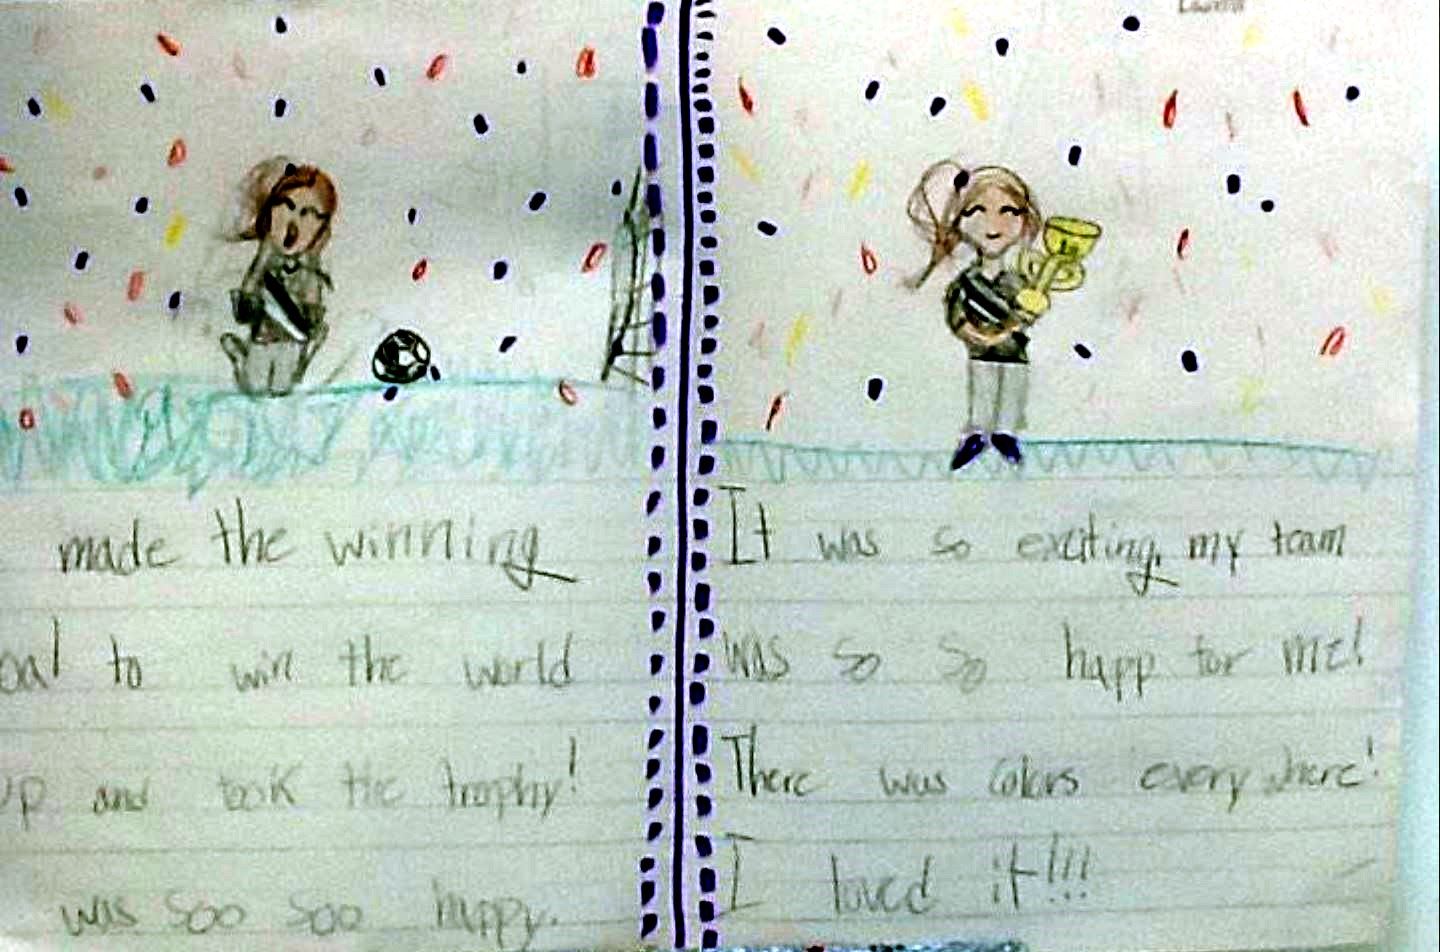 made the winning
oal to win the world
up and took the trophy!
was soo soo happy.
It was so exciting, my team
was so so happ for me!
There was colors everywhere!
I loved it!!!